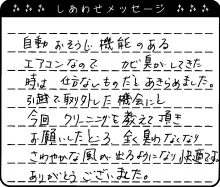 しあわせメッセージ
自動おそうじ機能のある
エアコンなので カビ臭がしてきた
時は 仕方ないものだとあきらめました。
引越で取外した機会にと
今回 クリーニングを教えて頂き
お願いしたところ 全く臭わなくなり
さわやかな風が出るようになり快適です。
ありがとうございました。